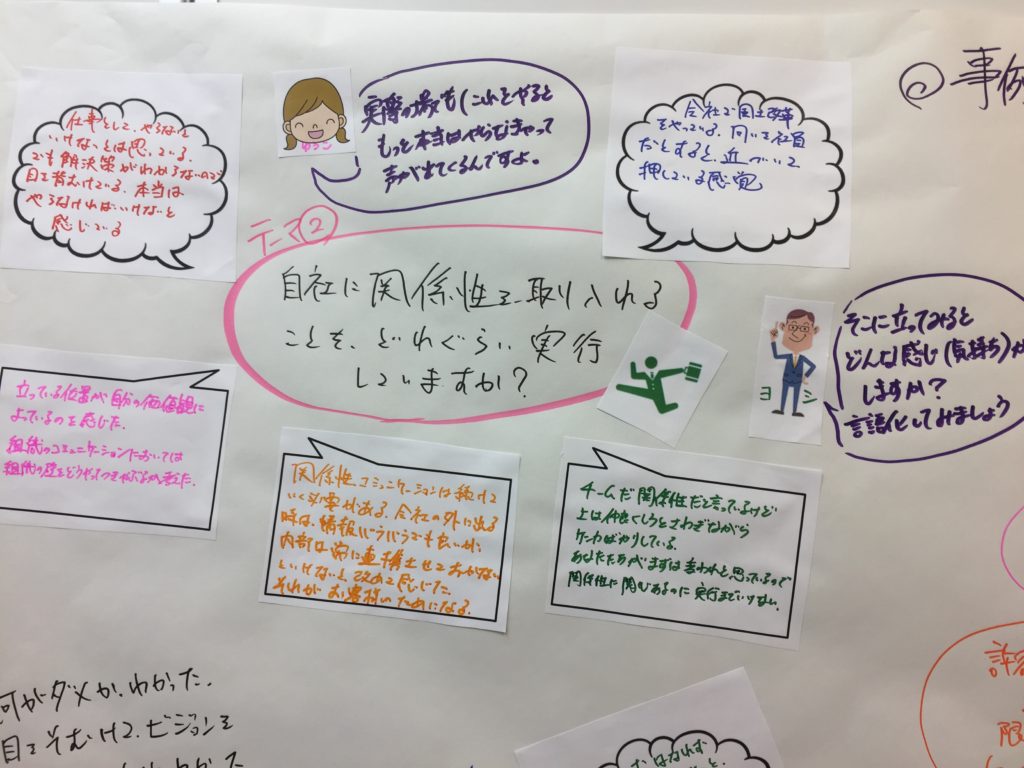 @事例
仕事として、やらないと
いけないとは思っている。
でも解決策がわからないので
目を背むけている。本当は
やらなければいけないと
感じている
ゆうこ
実際の場でも(これをやると
もっと本当はやらなきゃって
声が出てくるんですよ。
会社で
をやっている。向いを社員
だとすると、近づいて
押している感覚
テーマ②
自社に関係性を取り入れる
ことを、どれぐらい実行
していますか?
ヨシ
そこに立ってみると
どんな感じ(気持ち)が
しますか?
言語化してみましょう
立っている位置が自分の価値観に
よっているのを感じた。
組織のコミュニケーションにおいては
組織の壁をどうやって
関係性コミュニケーションは続けて
いく必要がある。会社の外に出る
時は、情報にうらうらでも良いが、
内部は常に重構士せておかない
といけないと改めて感じた。
それがお客様のためになる。
チームだ関係性だと言っているけど
上は仲良くしろとさわぎながら
ケンカばかりしている。
あなたたちがまずは変われと思っているので
関係性に関心あるのに実行までいけない。
何がダメか、わかった。
目をそむけて、ビジョンを
わかった
許容
限